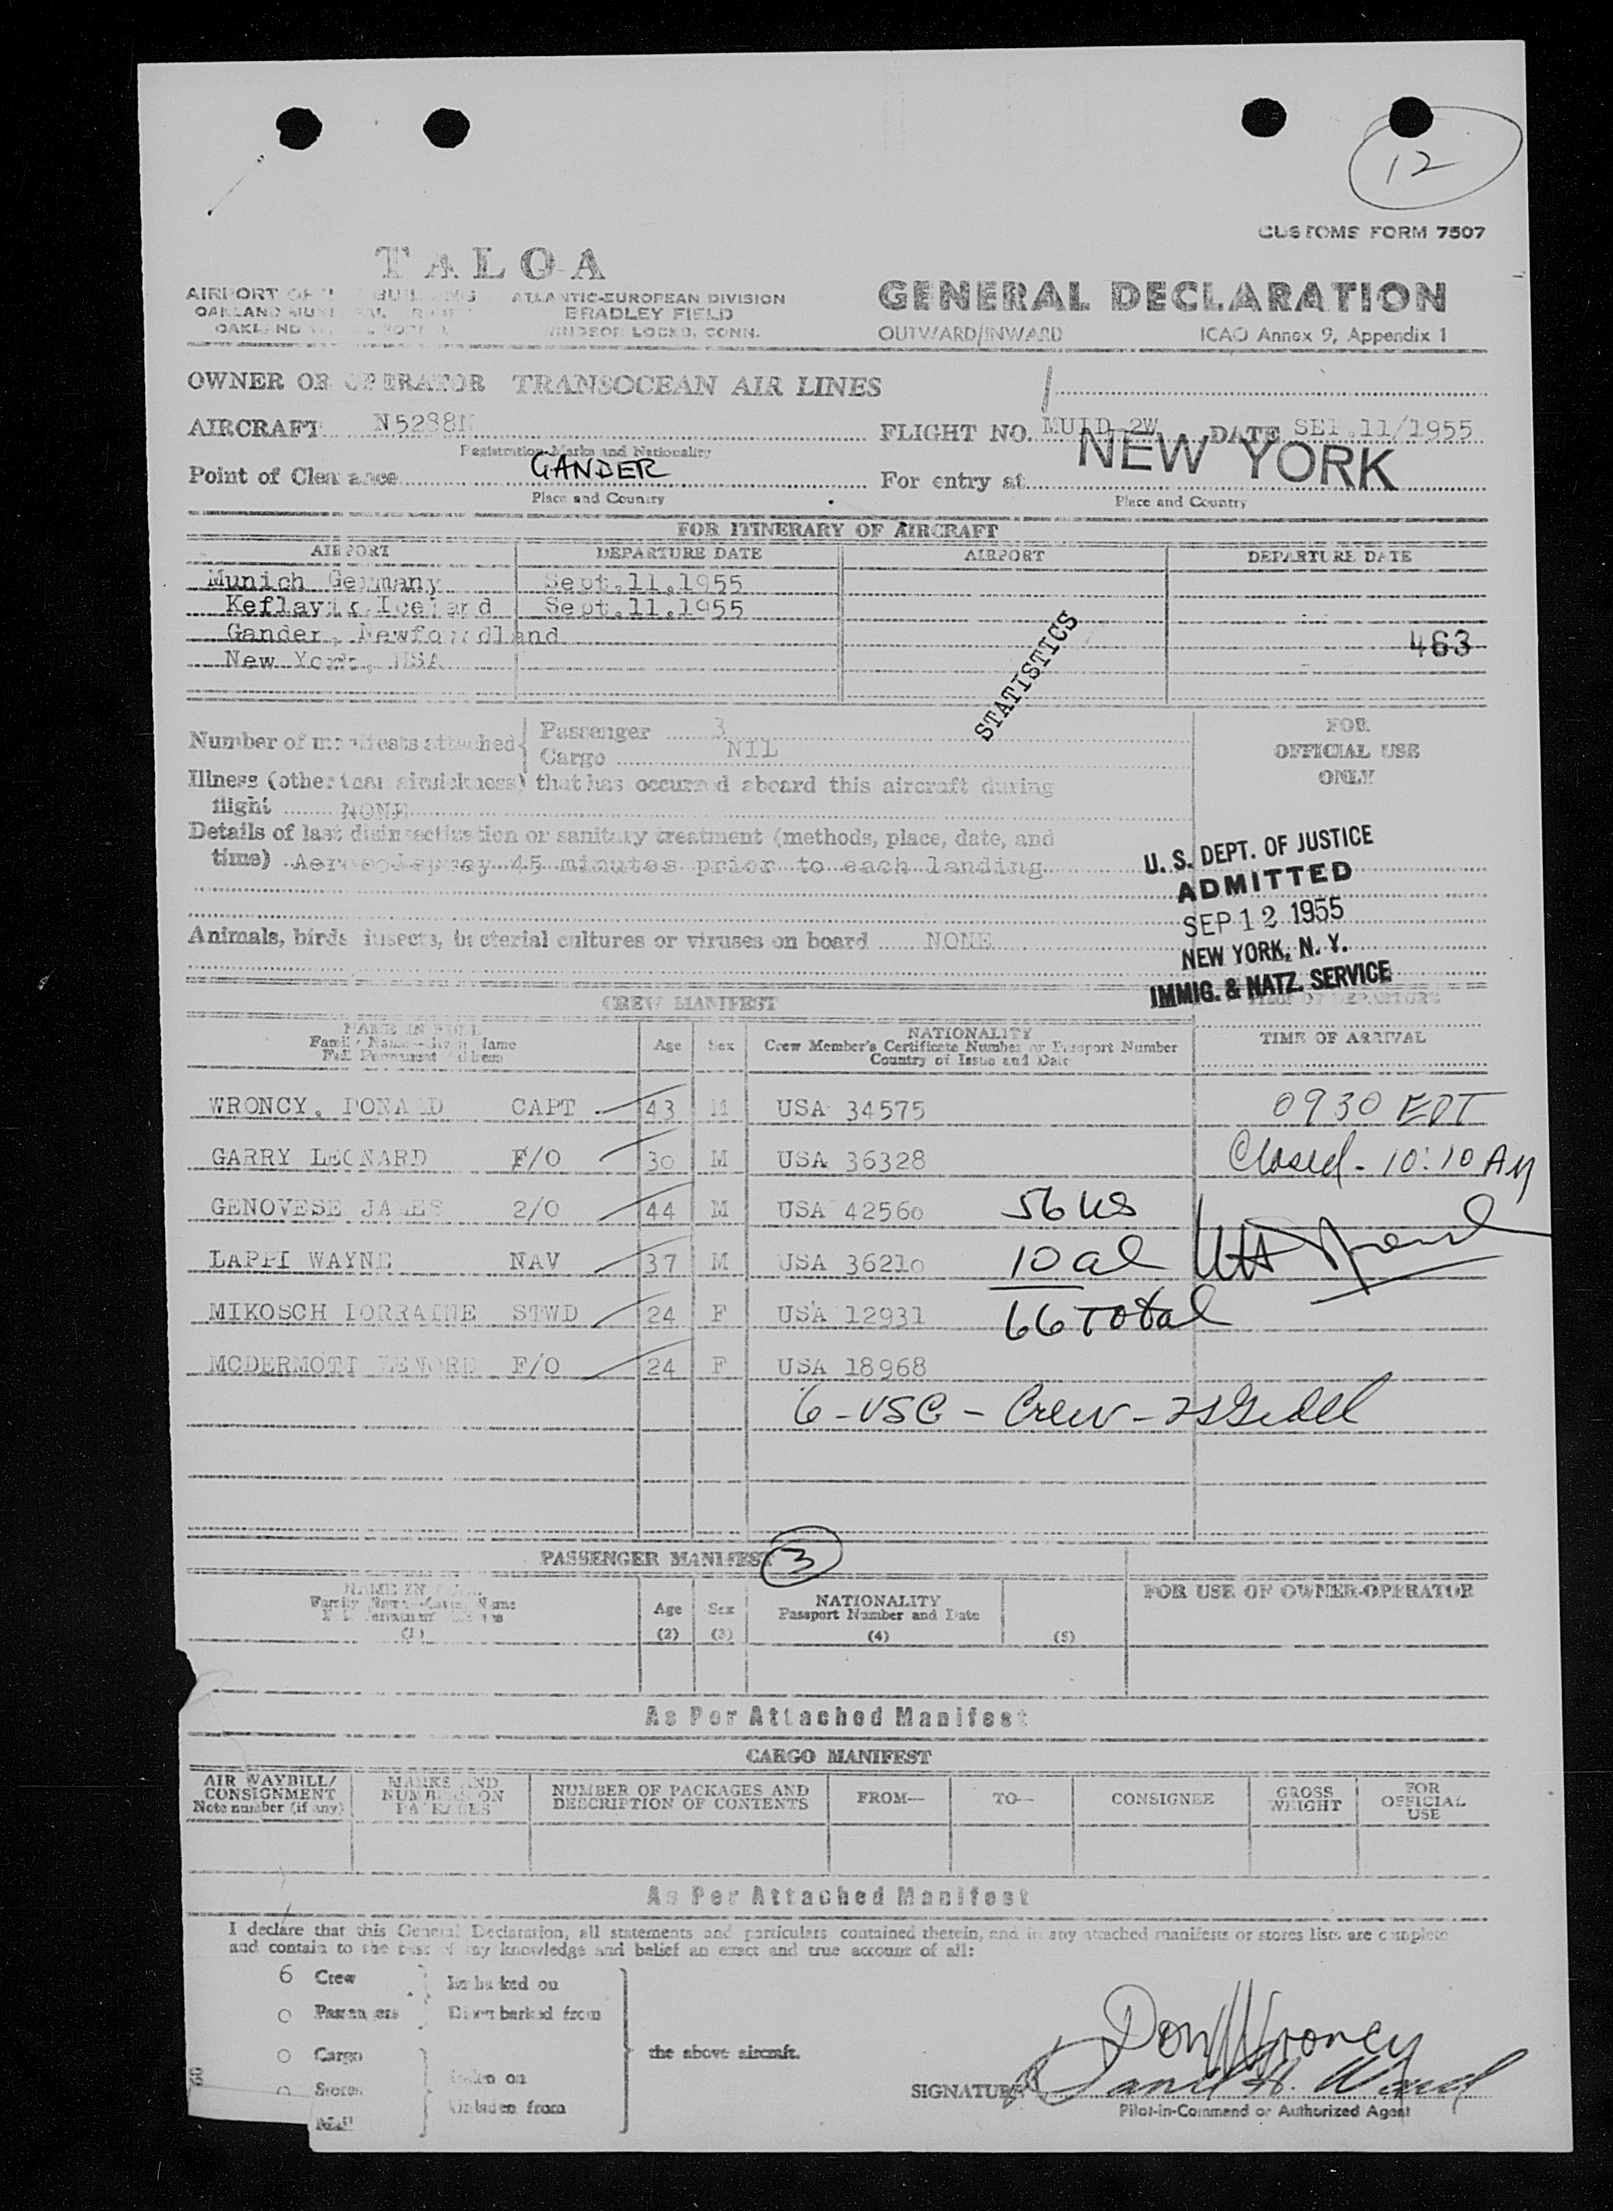 12
CUSTOMS FORM 7507
TALOA
AIRPORT ATLANTIC-EUROPEAN DIVISION
OAKLAND BRADLEY FIELD
OAKLAND WINDSOR LOCKS, CONN.
GENERAL DECLARATION
OUTWARD/INWARD ICAO Annex 9, Appendix 1
OWNER OR OPERATOR TRANSOCEAN AIR LINES
AIRCRAFT N5288N FLIGHT NO. DATE SEP.11/1955
Registration Marks and Nationality
Point of Clearance GANDER For entry at NEW YORK
Place and Country Place and Country
FOR ITINERARY OF AIRCRAFT
AIRPORT DEPARTURE DATE AIRPORT DEPARTURE DATE
Munich Germany Sept.11,1955
Keflavik Iceland Sept.11,1955
Gander, Newfoundland
New York, USA
463
STATISTICS
Number of manifests attached Passenger 3
Cargo NIL
FOR
OFFICIAL USE
ONLY
Illness (other than airsickness) that has occurred aboard this aircraft during
flight NONE
Details of last disinsectization or sanitary treatment (methods, place, date, and
time) Aerosol spray 45 minutes prior to each landing
U. S. DEPT. OF JUSTICE
ADMITTED
SEP 12 1955
NEW YORK, N. Y.
IMMIG. & NATZ. SERVICE
Animals, birds insects, bacterial cultures or viruses on board NONE
CREW MANIFEST
TIME OF DEPARTURE
NAME IN FULL
Family Name—Given Name
Full Permanent Address
Age Sex
NATIONALITY
Crew Member's Certificate Number or Passport Number
Country of Issue and Date
TIME OF ARRIVAL
WRONCY, DONALD CAPT 43 M USA 34575 0930 EDT
GARRY LEONARD F/O 30 M USA 36328 Closed - 10:10 AM
GENOVESE JAMES 2/O 44 M USA 42560 56 us
LAPPI WAYNE NAV 37 M USA 36210 10 al
MIKOSCH LORRAINE STWD 24 F USA 12931 66 Total
MCDERMOTT LENORE F/O 24 F USA 18968
6 - USC - Crew -
PASSENGER MANIFEST 3
NAME IN FULL
Age Sex
NATIONALITY
Passport Number and Date
FOR USE OF OWNER-OPERATOR
(1) (2) (3) (4) (5)
As Per Attached Manifest
CARGO MANIFEST
AIR WAYBILL/
CONSIGNMENT
Note number (if any)
MARKS AND
NUMBERS ON
PACKAGES
NUMBER OF PACKAGES AND
DESCRIPTION OF CONTENTS
FROM— TO— CONSIGNEE
GROSS
WEIGHT
FOR
OFFICIAL
USE
As Per Attached Manifest
I declare that this General Declaration, all statements and particulars contained therein, and in any attached manifests or stores lists are complete
and contain to the best of my knowledge and belief an exact and true account of all:
6 Crew Embarked on
0 Passengers Disembarked from
0 Cargo Laden on
0 Stores Unladen from
Mail
the above aircraft.
Don Wroncy
SIGNATURE
Pilot-in-Command or Authorized Agent